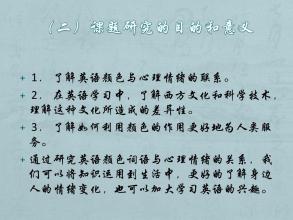 （二）课题研究的目的和意义
1．了解英语颜色与心理情绪的联系。
2．在英语学习中，了解西方文化和科学技术，
理解这种文化所造成的差异性。
3．了解如何利用颜色的作用更好地为人类服
务。
通过研究英语颜色词语与心理情绪的关系，我
们可以将知识运用到生活中，更好的了解身边
人的情绪变化，也可以加大学习英语的兴趣。